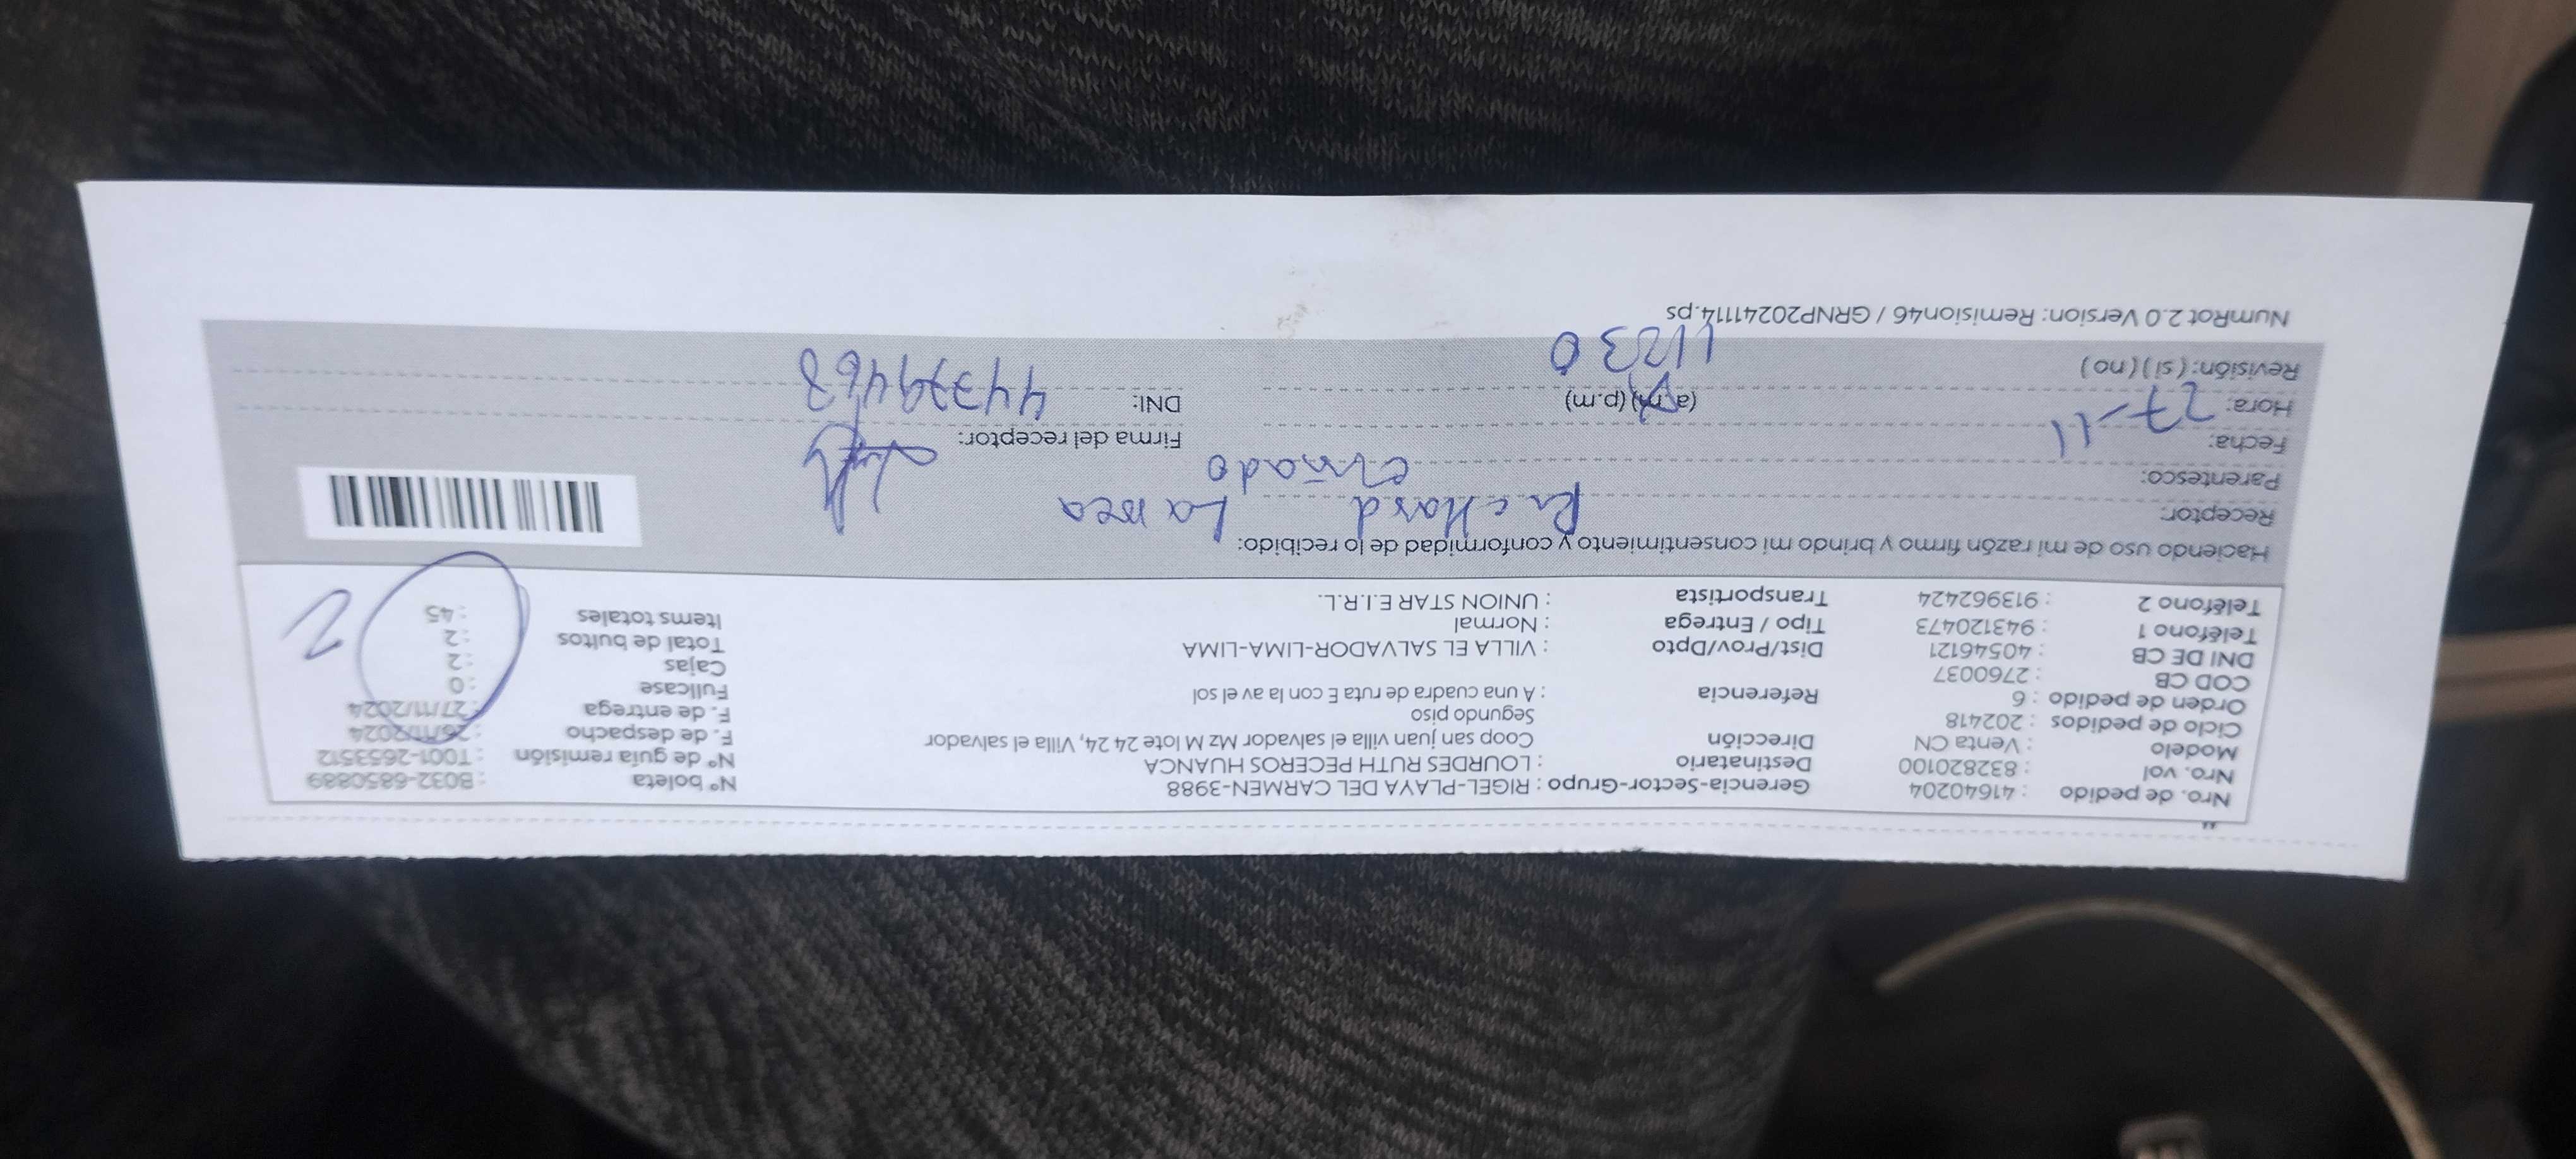 Nro. de pedido : 41640204 Gerencia-Sector-Grupo : RIGEL-PLAYA DEL CARMEN-3988 N° boleta : B032-6850889
Nro. vol : 832820100 Destinatario : LOURDES RUTH PECEROS HUANCA N° de guía remisión : T001-2653512
Modelo : Venta CN Dirección Coop san juan villa el salvador Mz M lote 24 24, Villa el salvador F. de despacho : 26/11/2024
Ciclo de pedidos : 202418 Segundo piso F. de entrega : 27/11/2024
Orden de pedido : 6 Referencia : A una cuadra de ruta E con la av el sol Fullcase : 0
COD CB : 2760037 Cajas : 2
DNI DE CB : 40546121 Dist/Prov/Dpto : VILLA EL SALVADOR-LIMA-LIMA Total de bultos : 2 2
Teléfono 1 : 943120473 Tipo / Entrega : Normal Items totales : 45
Teléfono 2 : 913962424 Transportista : UNION STAR E.I.R.L.
Haciendo uso de mi razón firmo y brindo mi consentimiento y conformidad de lo recibido:
Receptor: Richard
Parentesco:
Fecha: 27-11 Firma del receptor:
Hora: (a.m) (p.m) DNI: 44779468
Revisión: ( si ) ( no ) 11230
NumRot 2.0 Version: Remision46 / GRNP20241114.ps